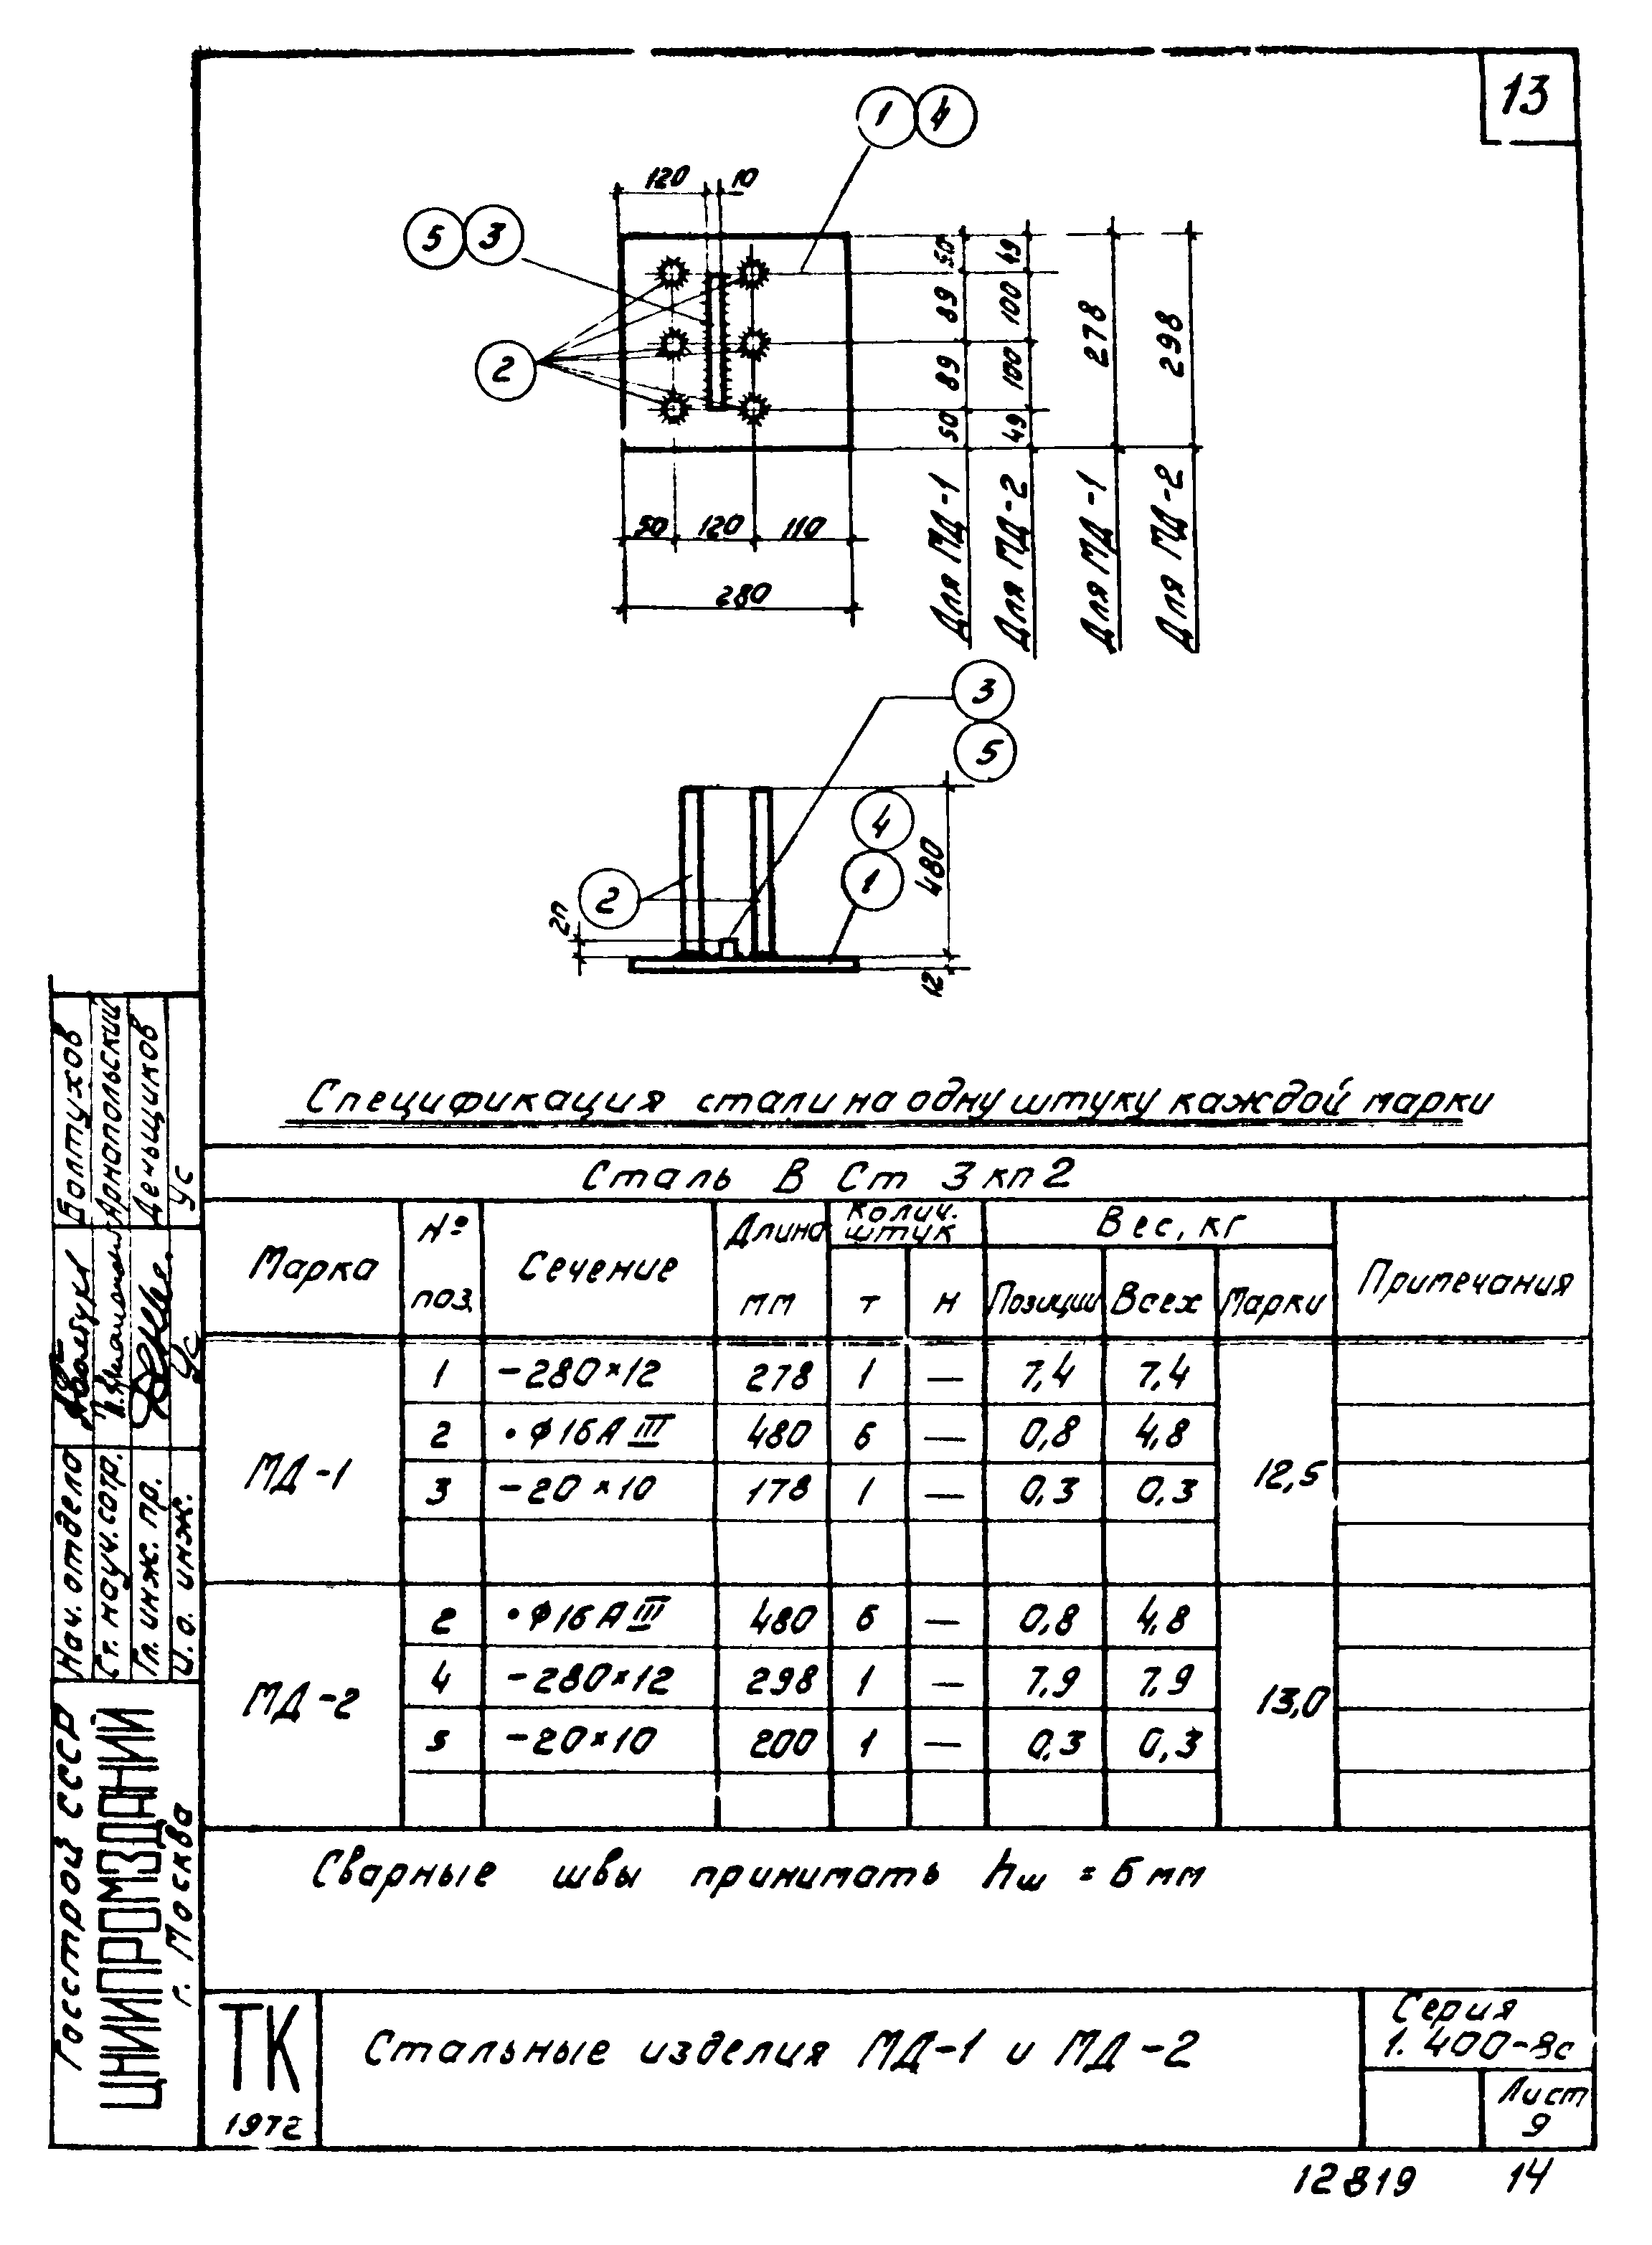 13
1 4
120 10
5 3
2
50 89 89 50 Для МД-1
49 100 100 49 Для МД-2
278 Для МД-1
298 Для МД-2
50 120 110
280
3
5
4
1
2
480
12
Спецификация стали на одну штуку каждой марки
Сталь В Ст 3 кп 2
Марка № поз. Сечение Длина мм Колич. штук т н Вес, кг Позиции Всех Марки Примечания
МД-1 12,5
1 -280×12 278 1 — 7,4 7,4
2 •ф16АIII 480 6 — 0,8 4,8
3 -20×10 178 1 — 0,3 0,3
МД-2 13,0
2 •ф16АIII 480 6 — 0,8 4,8
4 -280×12 298 1 — 7,9 7,9
5 -20×10 200 1 — 0,3 0,3
Сварные швы принимать hш = 6 мм
ТК
1972
Стальные изделия МД-1 и МД-2
Серия
1.400-8с
Лист
9
12819 14
Госстрой СССР
ЦНИИПРОМЗДАНИЙ
г. Москва
Нач. отдела Болтухов
Ст. науч. сотр. Армопольский
Гл. инж. пр. Деньщиков
И. о. инж. Ус